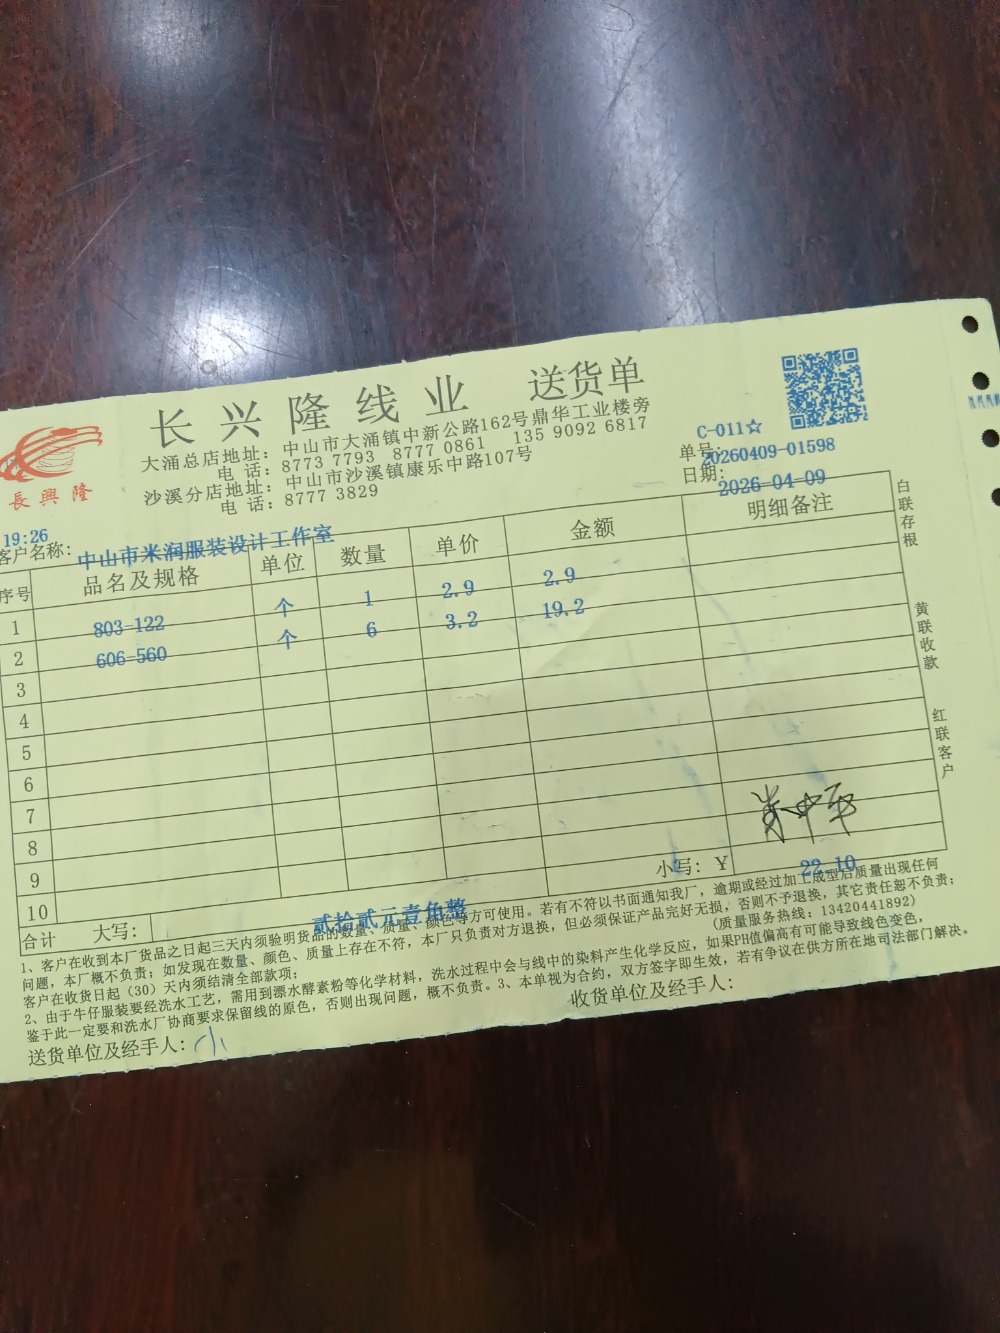 长兴隆线业 送货单
大涌总店地址：中山市大涌镇中新公路162号鼎华工业楼旁
电 话：8773 7793 8777 0861 135 9092 6817
沙溪分店地址：中山市沙溪镇康乐中路107号
电 话：8777 3829
長興隆
C-011☆
单号：20260409-01598
日期：2026-04-09
19:26
客户名称：中山市米润服装设计工作室
序号 品名及规格 单位 数量 单价 金额 明细备注
1 803-122 个 1 2.9 2.9
2 606-560 个 6 3.2 19.2
3
4
5
6
7
8
9
10
合计 大写：贰拾贰元壹角整 小写：￥ 22.10
白联存根
黄联收款
红联客户
1、客户在收到本厂货品之日起三天内须验明货品的数量、质量、颜色等方可使用。若有不符以书面通知我厂，逾期或经过加工成型后质量出现任何
问题，本厂概不负责；如发现在数量、颜色、质量上存在不符，本厂只负责对方退换，但必须保证产品完好无损，否则不予退换，其它责任恕不负责；
客户在收货日起（30）天内须结清全部款项； (质量服务热线：13420441892)
2、由于牛仔服装要经洗水工艺，需用到漂水酵素粉等化学材料，洗水过程中会与线中的染料产生化学反应，如果PH值偏高有可能导致线色变色，
鉴于此一定要和洗水厂协商要求保留线的原色，否则出现问题，概不负责。3、本单视为合约，双方签字即生效，若有争议在供方所在地司法部门解决。
送货单位及经手人：小 收货单位及经手人：